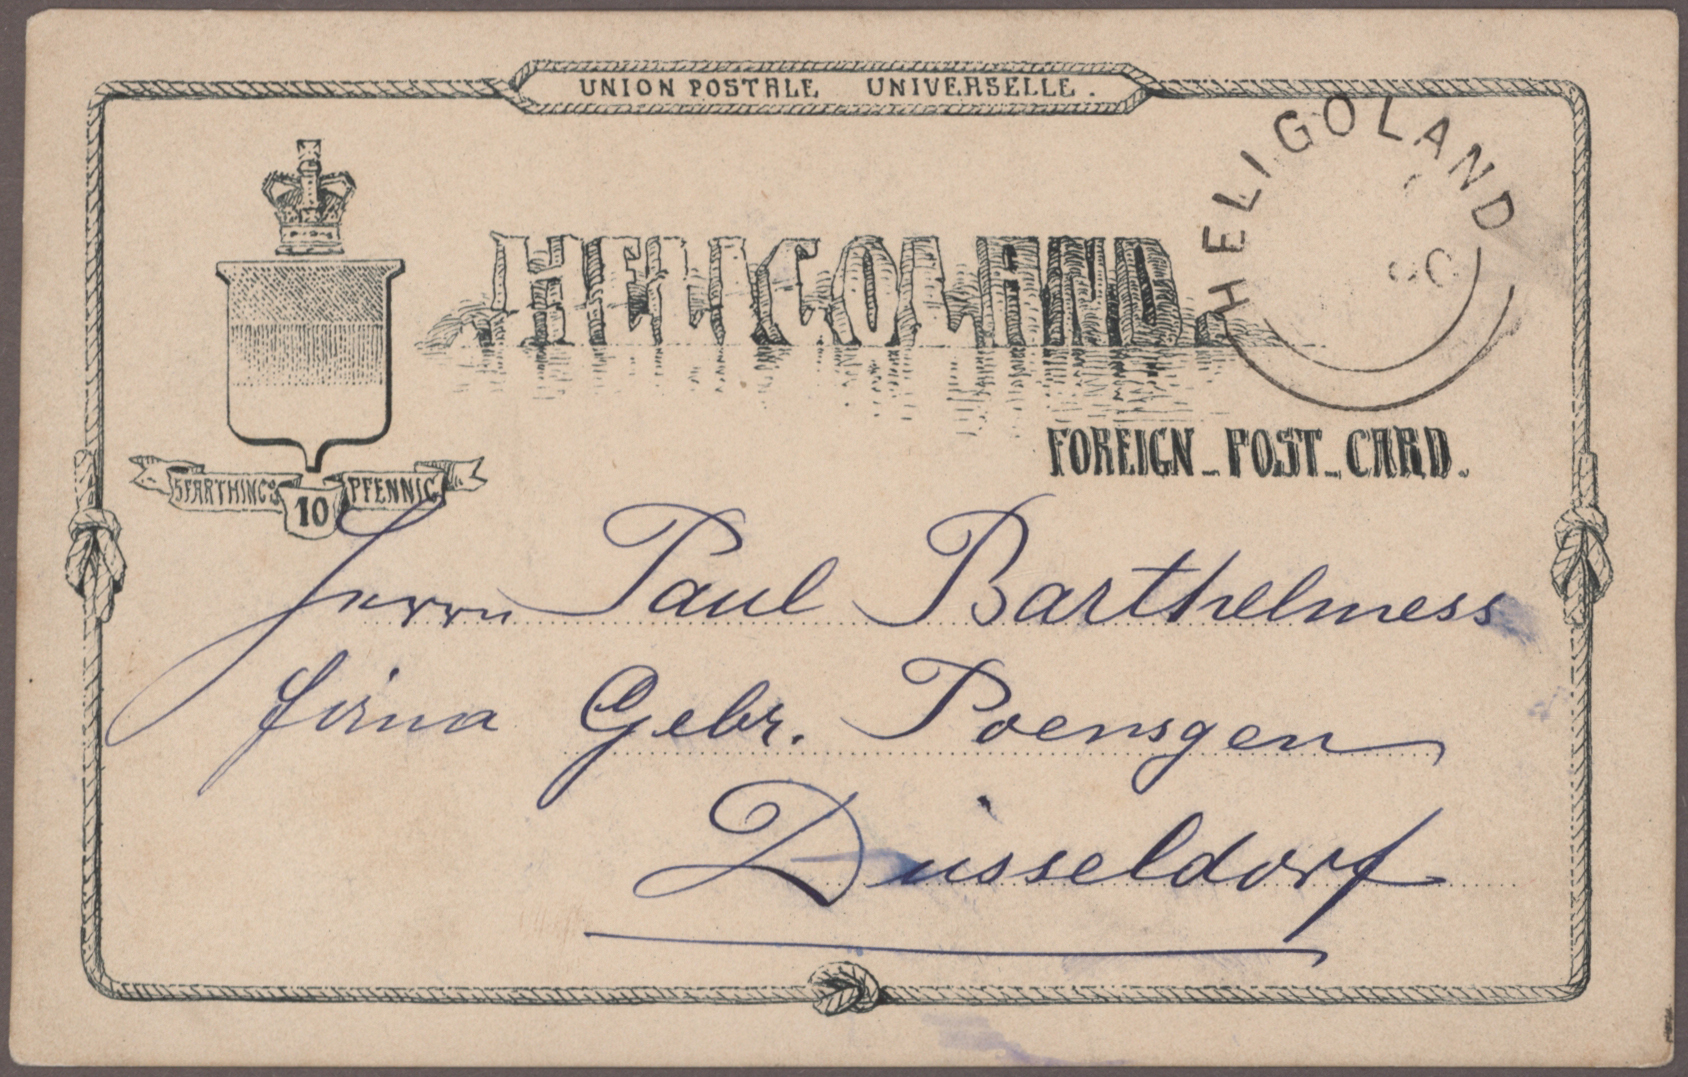 UNION POSTALE UNIVERSELLE.
HELIGOLAND
HELIGOLAND
FOREIGN_POST_CARD.
5 FARTHINGS 10 PFENNIG
Herrn Paul Barthelmess
Firma Gebr. Poensgen
Düsseldorf